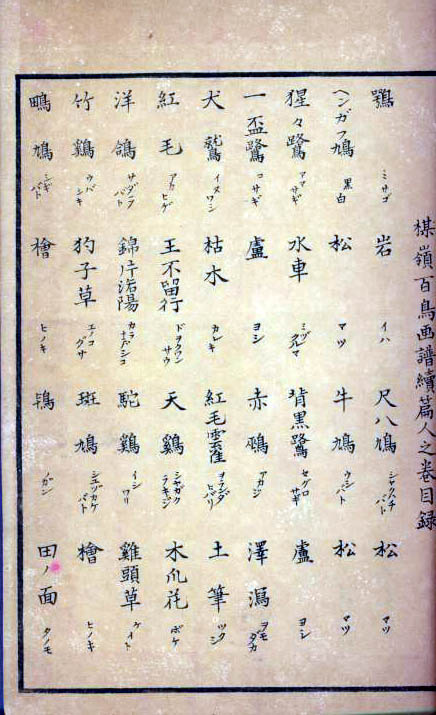 楳嶺百鳥画譜續篇人之卷目録
鶚 ミサゴ 岩 イハ 尺八鳩 シャクハチバト 松 マツ
ヘンガフ鳩 黒白 松 マツ 牛鳩 ウシバト 松 マツ
猩々鷺 アマサギ 水車 ミヅグルマ 背黒鷺 セグロサギ 蘆 ヨシ
一盃鷺 コサギ 蘆 ヨシ 赤鵶 アカジ 澤瀉 ヲモダカ
犬鷲 イヌワシ 枯木 カレキ 紅毛雲雀 ヲランダヒバリ 土筆 ツクシ
紅毛 アカヒゲ 王不留行 ドヲクワンサウ 天鷄 シャガタラキジ 木瓜花 ボケ
洋鴿 サヅラバト 錦片洛陽 カラナデシコ 駝鷄 イシワリ 雞頭草 ケイト
竹鷄 ウバシキ 狗子草 エノコグサ 斑鳩 ジュヅカケバト 檜 ヒノキ
鴫鳩 シギバト 檜 ヒノキ 鴇 ノガン 田ノ面 タノモ